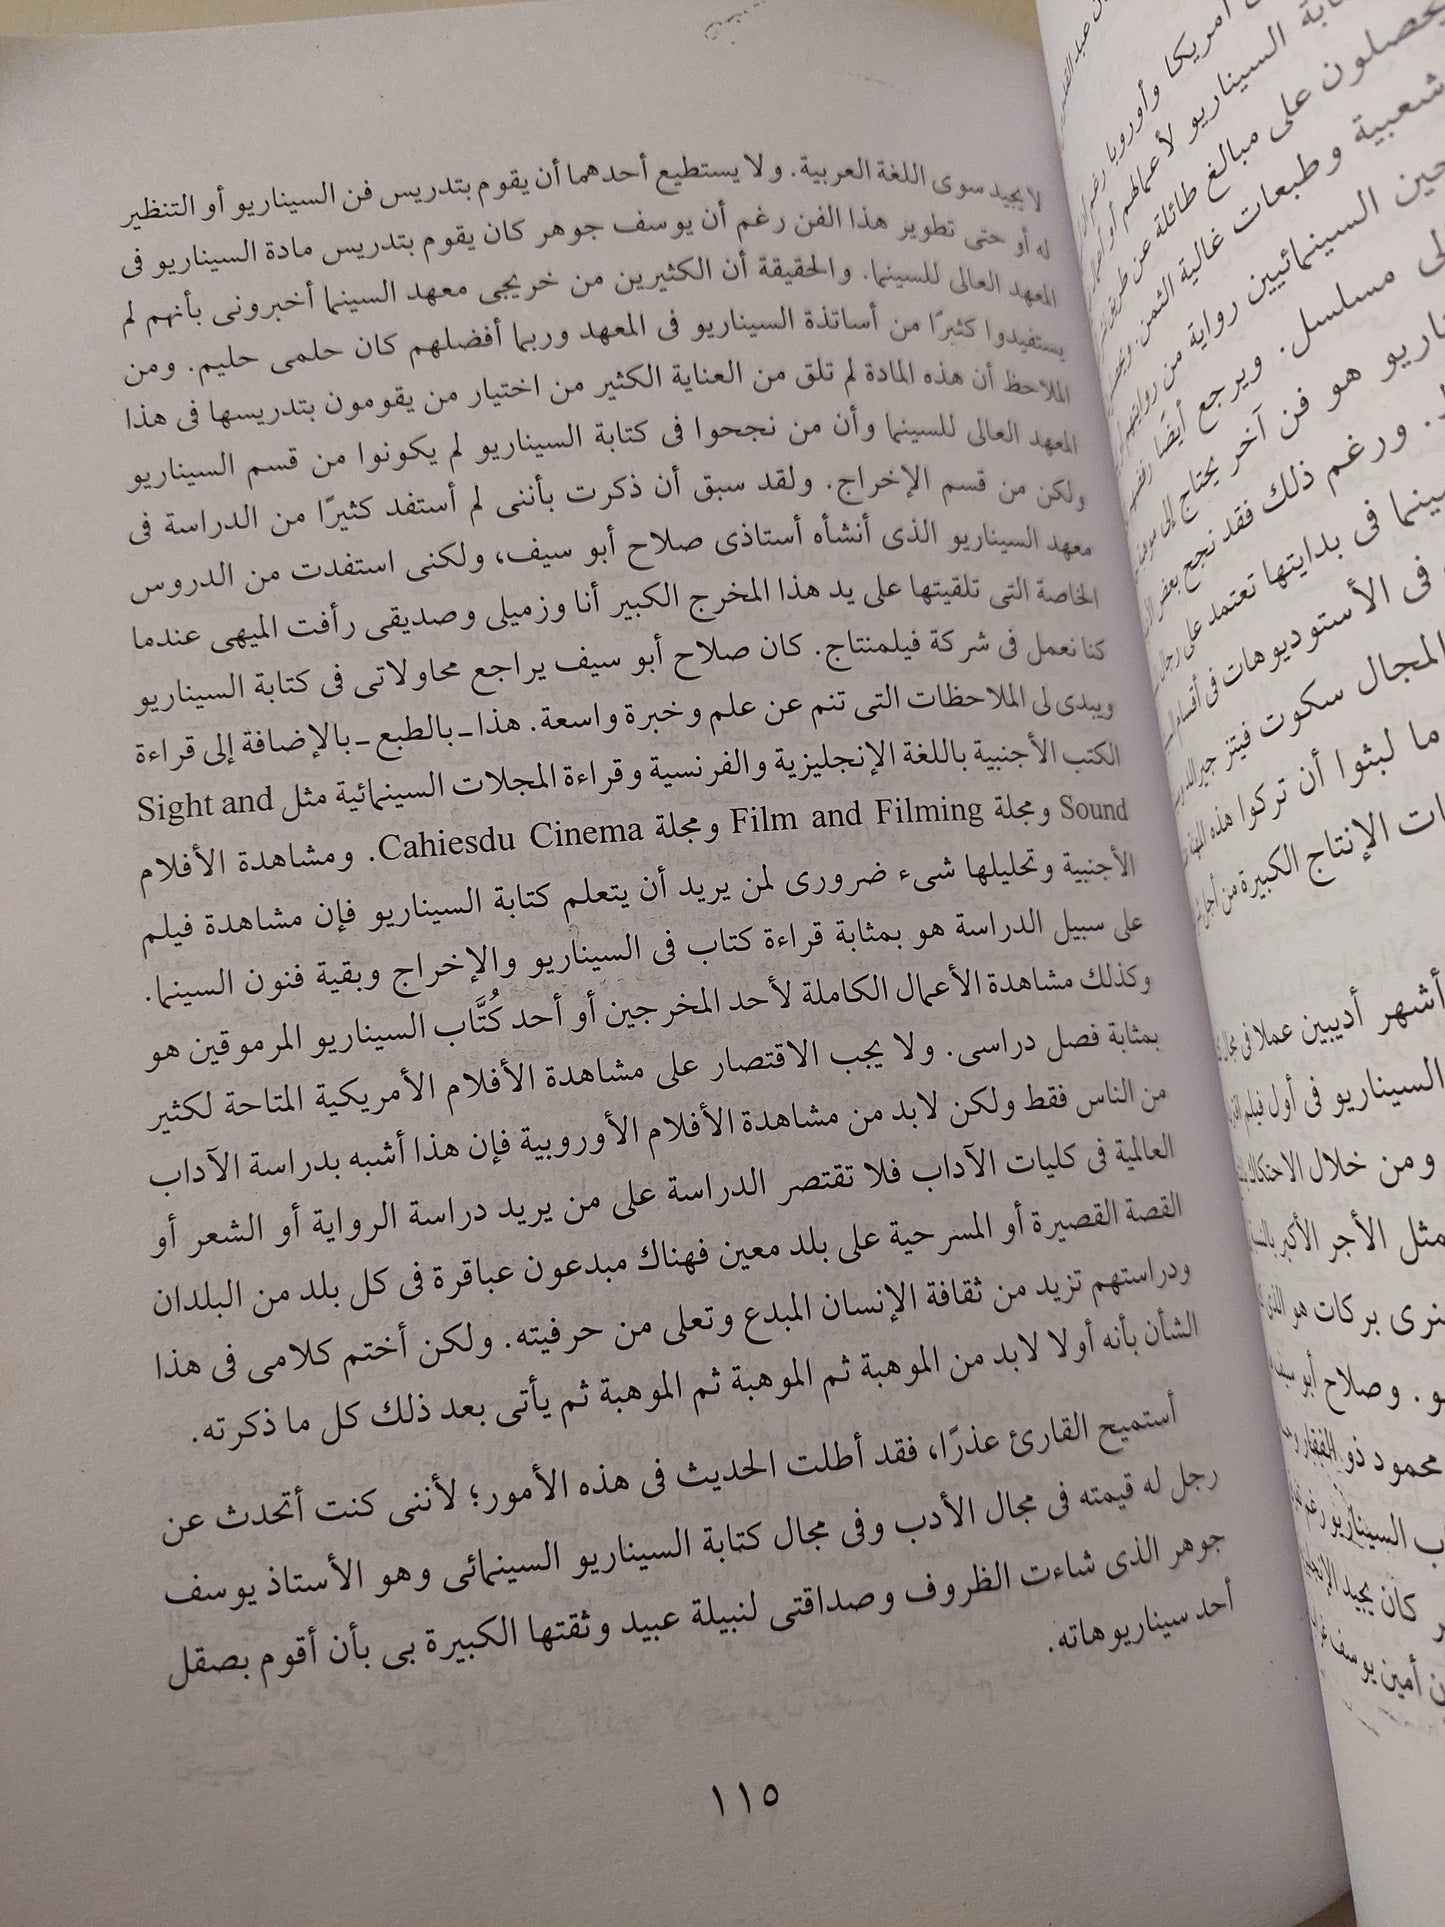 لا يجيد سوى اللغة العربية. ولا يستطيع أحدهما أن يقوم بتدريس فن السيناريو أو التنظير
له أو حتى تطوير هذا الفن رغم أن يوسف جوهر كان يقوم بتدريس مادة السيناريو فى
المعهد العالى للسينما. والحقيقة أن الكثيرين من خريجى معهد السينما أخبرونى بأنهم لم
يستفيدوا كثيرًا من أساتذة السيناريو فى المعهد وربما أفضلهم كان حلمى حليم. ومن
الملاحظ أن هذه المادة لم تلق من العناية الكثير من اختيار من يقومون بتدريسها فى هذا
المعهد العالى للسينما وأن من نجحوا فى كتابة السيناريو لم يكونوا من قسم السيناريو
ولكن من قسم الإخراج. ولقد سبق أن ذكرت بأننى لم أستفد كثيرًا من الدراسة فى
معهد السيناريو الذى أنشأه أستاذى صلاح أبو سيف، ولكنى استفدت من الدروس
الخاصة التى تلقيتها على يد هذا المخرج الكبير أنا وزميلى وصديقى رأفت الميهى عندما
كنا نعمل فى شركة فيلمنتاج. كان صلاح أبو سيف يراجع محاولاتى فى كتابة السيناريو
ويبدى لى الملاحظات التى تنم عن علم وخبرة واسعة. هذا ـ بالطبع ـ بالإضافة إلى قراءة
الكتب الأجنبية باللغة الإنجليزية والفرنسية وقراءة المجلات السينمائية مثل Sight and
Sound ومجلة Film and Filming ومجلة Cahiesdu Cinema. ومشاهدة الأفلام
الأجنبية وتحليلها شىء ضرورى لمن يريد أن يتعلم كتابة السيناريو فإن مشاهدة فيلم
على سبيل الدراسة هو بمثابة قراءة كتاب فى السيناريو والإخراج وبقية فنون السينما.
وكذلك مشاهدة الأعمال الكاملة لأحد المخرجين أو أحد كُتَّاب السيناريو المرموقين هو
بمثابة فصل دراسى. ولا يجب الاقتصار على مشاهدة الأفلام الأمريكية المتاحة لكثير
من الناس فقط ولكن لابد من مشاهدة الأفلام الأوروبية فإن هذا أشبه بدراسة الآداب
العالمية فى كليات الآداب فلا تقتصر الدراسة على من يريد دراسة الرواية أو الشعر أو
القصة القصيرة أو المسرحية على بلد معين فهناك مبدعون عباقرة فى كل بلد من البلدان
ودراستهم تزيد من ثقافة الإنسان المبدع وتعلى من حرفيته. ولكن أختم كلامى فى هذا
الشأن بأنه أولا لابد من الموهبة ثم الموهبة ثم الموهبة ثم يأتى بعد ذلك كل ما ذكرته.
أستميح القارئ عذرًا، فقد أطلت الحديث فى هذه الأمور؛ لأننى كنت أتحدث عن
رجل له قيمته فى مجال الأدب وفى مجال كتابة السيناريو السينمائى وهو الأستاذ يوسف
جوهر الذى شاءت الظروف وصداقتى لنبيلة عبيد وثقتها الكبيرة بى بأن أقوم بصقل
أحد سيناريوهاته.
١١٥
أمريكا وأوروبا
السيناريو لأعمالهم أو
يحصلون على مبالغ طائلة عن طريق
شعبية وطبعات غالية الثمن.
حين السينمائيين رواية من
مسلسل. ويرجع أيضًا
هو فن آخر يحتاج إلى
ورغم ذلك فقد نجح بعض
فى بدايتها تعتمد على رجال
فى الأستوديوهات فى
المجال سكوت فيتز
ما لبثوا أن تركوا هذه
الإنتاج الكبيرة من أجل
أشهر أديبين عملا فى مجال
السيناريو فى أول فيلم
ومن خلال الاحتكاك
مثل الأجر الأكبر
بركات هو الذى
وصلاح أبو سيف
محمود ذو الفقار
السيناريو رغم
كان يجيد
أمين يوسف غراب